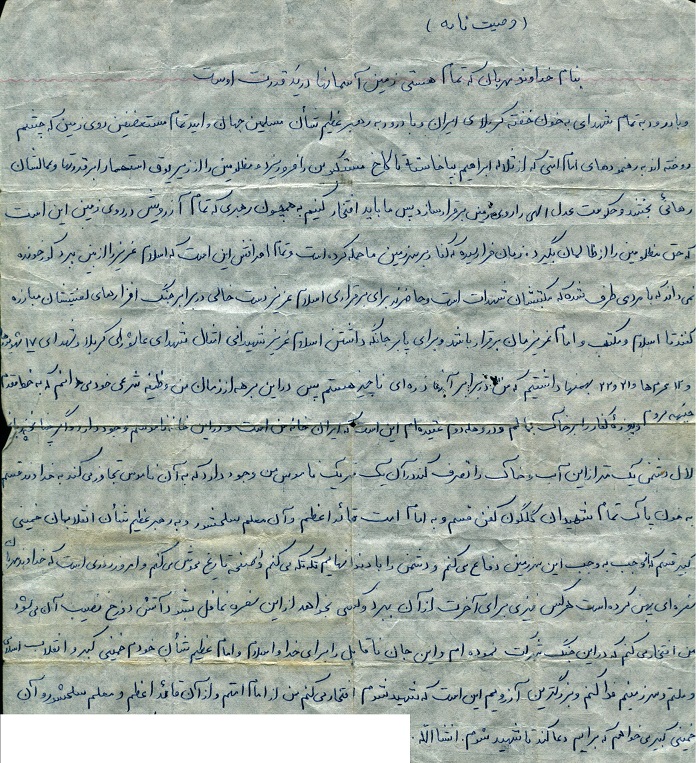 (وصیت نامه)
بنام خداوند مهربان که تمام هستی زمین آسمانها در ید قدرت اوست
و با درود به تمام شهدای به خون خفته کربلای ایران و با درود به رهبر عظیم شأن مسلمین جهان و امید تمام مستضعفین روی زمین که چشم
دوخته اند به رهنمودهای امام امتی که از سلاله ابراهیم بپا خاسته تا کاخ مستکبرین را فرو ریزد و مظلومین را از زیر یوق استعمار ابرقدرتها و عمالشان
رهائی بخشد و حکومت عدل الهی را روی زمین برقرار سازد پس ما باید افتخار کنیم به همچون رهبری که تمام آرزویش در روی زمین این است
که حق مظلومین را از ظالمان بگیرد زمان فرا رسیده که کفار به سرزمین ما حمله کرده است و تمام اهدافش این است که اسلام عزیز را از بین ببرد گر چه نمی
داند که با مردمی طرف شده که مکتبشان شهادت است و حاضرند برای برقراری اسلام عزیز دست خالی در برابر جنگ افزارهای مبارزه
کنند تا اسلام و مکتب و امام عزیزمان برقرار باشد و برای پابرجا نگه داشتن اسلام عزیز شهیدانی امثال شهدای عاشورای کربلا و شهدای ۱۷ شهریور
و ۲۱ و ۲۲ بهمنها داشتیم که من در برابر آنها ذره ای ناچیز هستم پس در این برهه از زمان من وظیفه شرعی خود می دانم که به خط مقدم
جبهه بروم و پوزه کفار را بر خاک بمالم و در وهله دوم عقیده ام این است که ایران خانه من است و در این خانه ناموسم وجود دارد و اگر
دشمنی یک متر از این آب و خاک را تصرف کند در آن یک متر یک ناموس من وجود دارد که به آن ناموس تجاوز می کند به خداوند قسم
به خون پاک تمام شهیدان گلگون کفن قسم و به امام امت قائد اعظم و آن معلم سلحشور و به رهبر عظیم شأن انقلابمان خمینی
کبیر قسم که وجب به وجب این سرزمین دفاع می کنم و دشمن را با دندانهایم تکه تکه می کنم و امروز روزی است که خداوند مهربان
سفره ای پهن کرده است هر کس چیزی برای آخرت از آن ببرد و کسی بخواهد از این سفره غافل بشد آتش دوزخ نصیب آن می شود
من افتخار می کنم که در این جنگ شرکت نموده ام و این جان ناقابل را برای خدا و اسلام و امام عظیم شأن خودم خمینی کبیر و انقلاب اسلامی
و ملتم و سرزمینم فدا کنم و بزرگترین آرزویم این است که شهید شوم افتخار می کنم من از امام امتم و از آن قائد اعظم و معلم سلحشور و آن
خمینی کبیر می خواهم که برایم دعا کند تا شهید شوم. انشاالله.